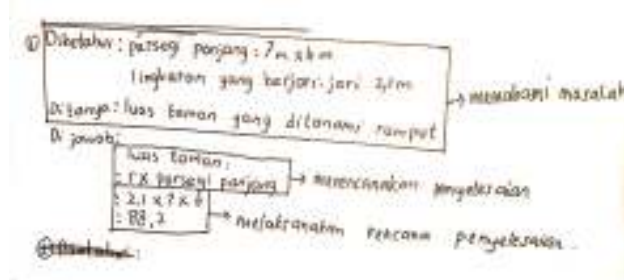 ① Diketahui : persegi panjang : 7 m x 6 m
lingkaran yang berjari-jari 2,1 m
→ memahami masalah
Ditanya : luas taman yang ditanami rumput
Di jawab :
luas taman :
: r x persegi panjang → merencanakan penyelesaian
: 2,1 x 7 x 6
: 88,2 → melaksanakan rencana penyelesaian.